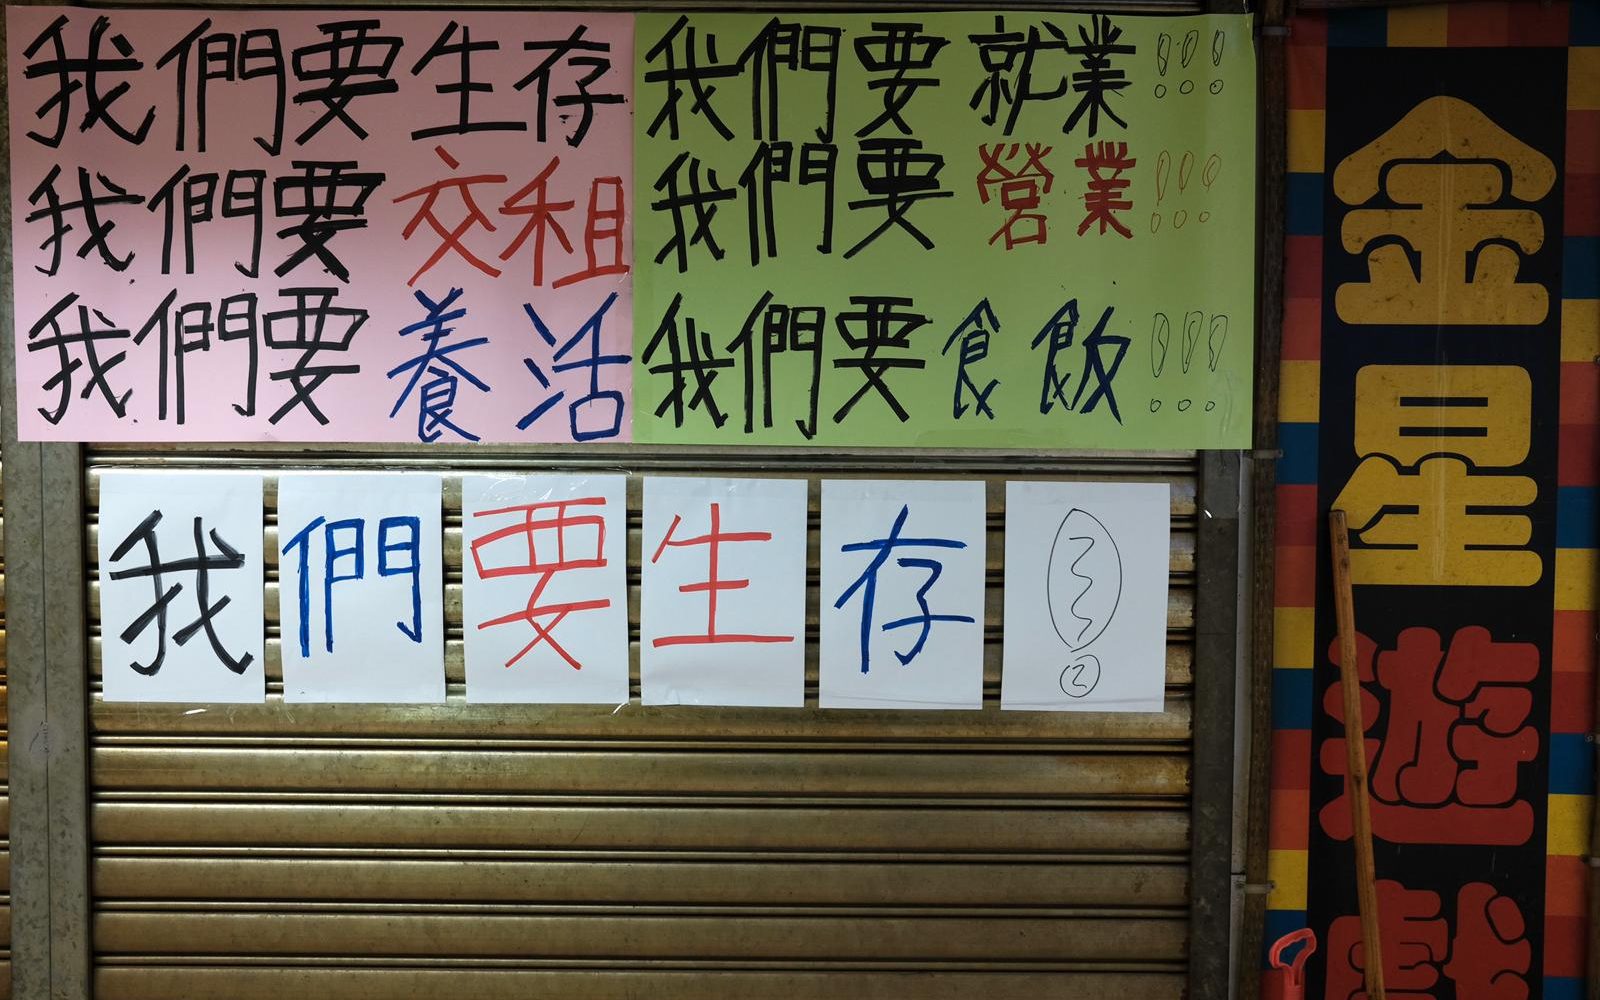 我們要生存
我們要交租
我們要養活
我們要就業!!!
我們要營業!!!
我們要食飯!!!
我們要生存!
金星遊戲